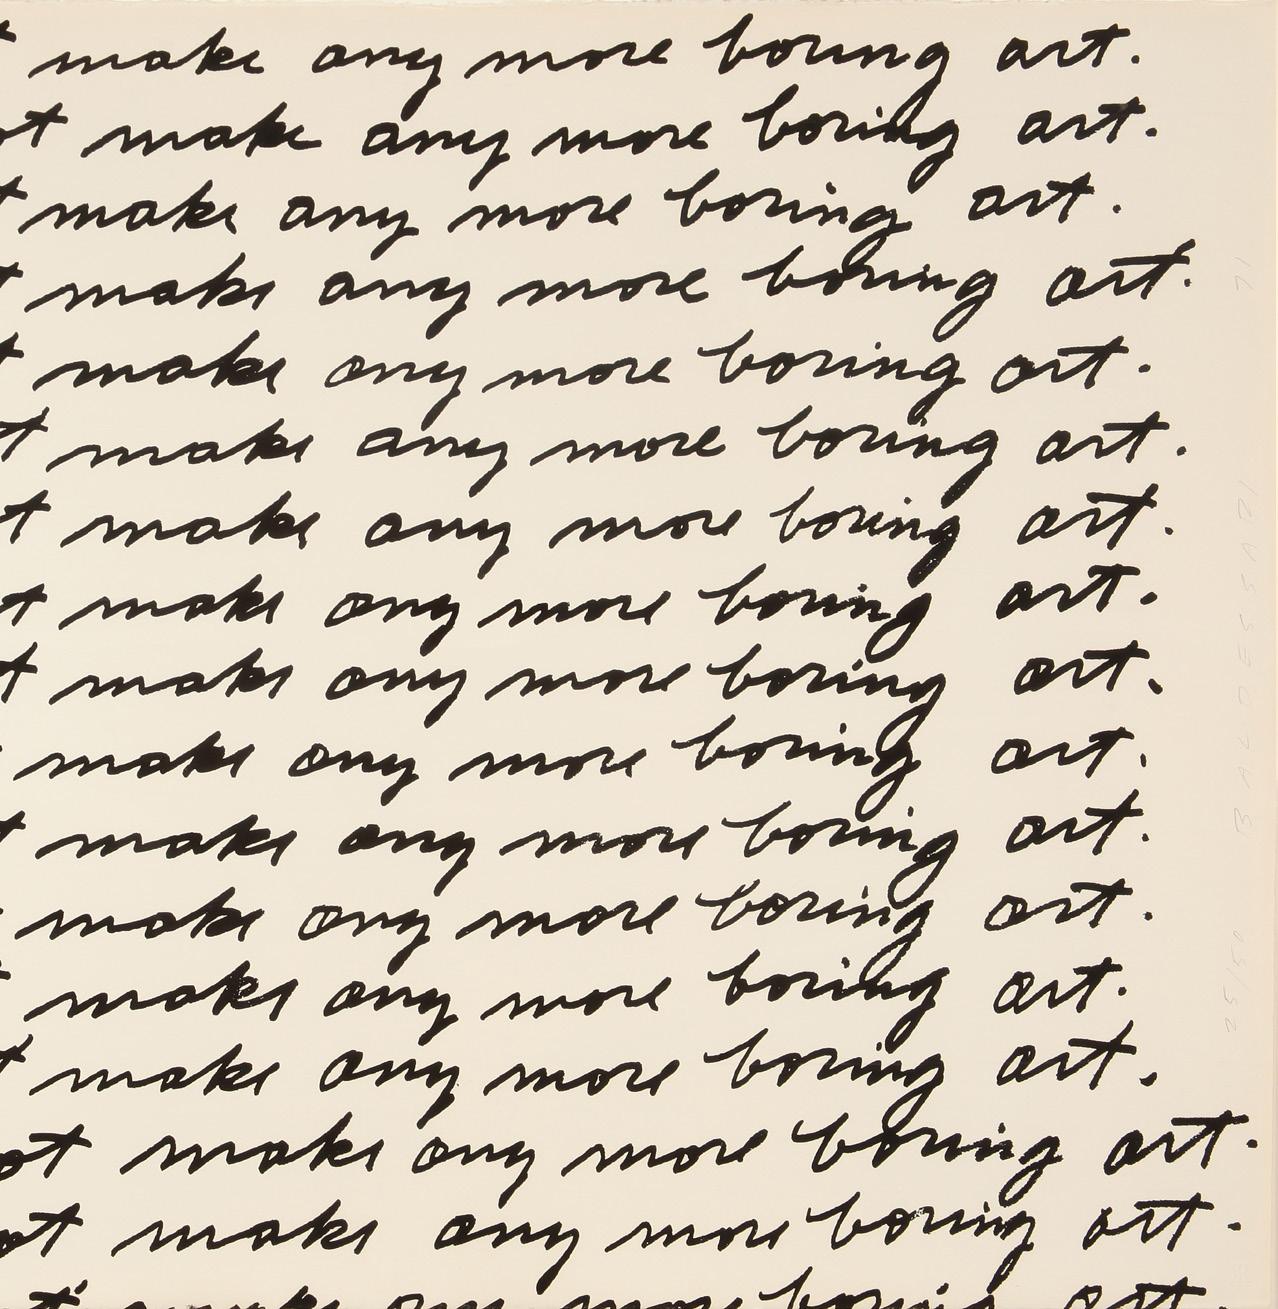 t make any more boring art.
ot make any more boring art.
t make any more boring art.
t make any more boring art.
t make any more boring art.
t make any more boring art.
t make any more boring art.
t make any more boring art.
t make any more boring art.
make any more boring art.
t make any more boring art.
make any more boring art.
t make any more boring art.
t make any more boring art.
ot make any more boring art.
ot make any more boring art.
t make any more boring art.
25/50 BALDESSARI 71